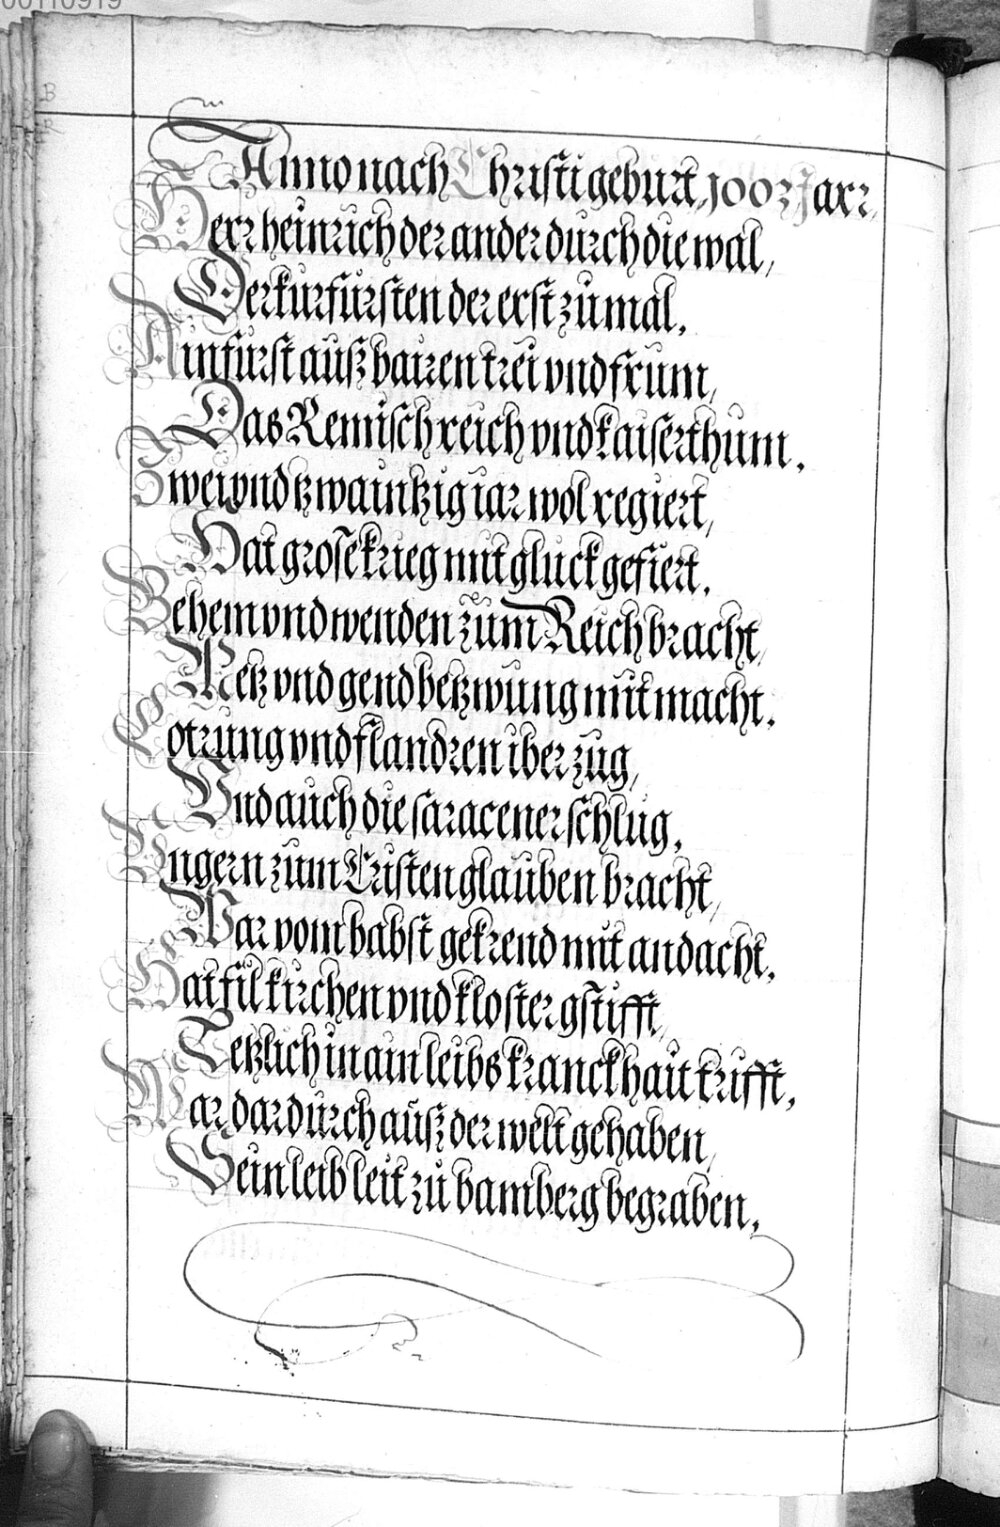 00110919
B
R
Anno nach Christi geburt, 1003 Jarr,
Herr heinrich der ander durch die wal,
Der kurfürsten der erst zu mal.
Ain fürst auß bairen trei vnd frum,
Das Remisch reich vnd kaiserthum.
Zwei vnd tzwaintzig iar wol regiert,
Hat grose krieg mit gluck gefiert.
Behem vnd wenden zum Reich bracht,
Metz vnd gend betzwung mit macht.
Lotrung vnd flandren iber zug,
Vnd auch die saracener schlug.
Vngern zum Cristen glauben bracht,
War vom babst gekrend mit andacht.
Hat fil kirchen vnd kloster gstifft,
Letzlich in ain leibs kranckhait trifft.
War dardurch auß der welt gehaben,
Sein leib leit zu bamberg begraben.